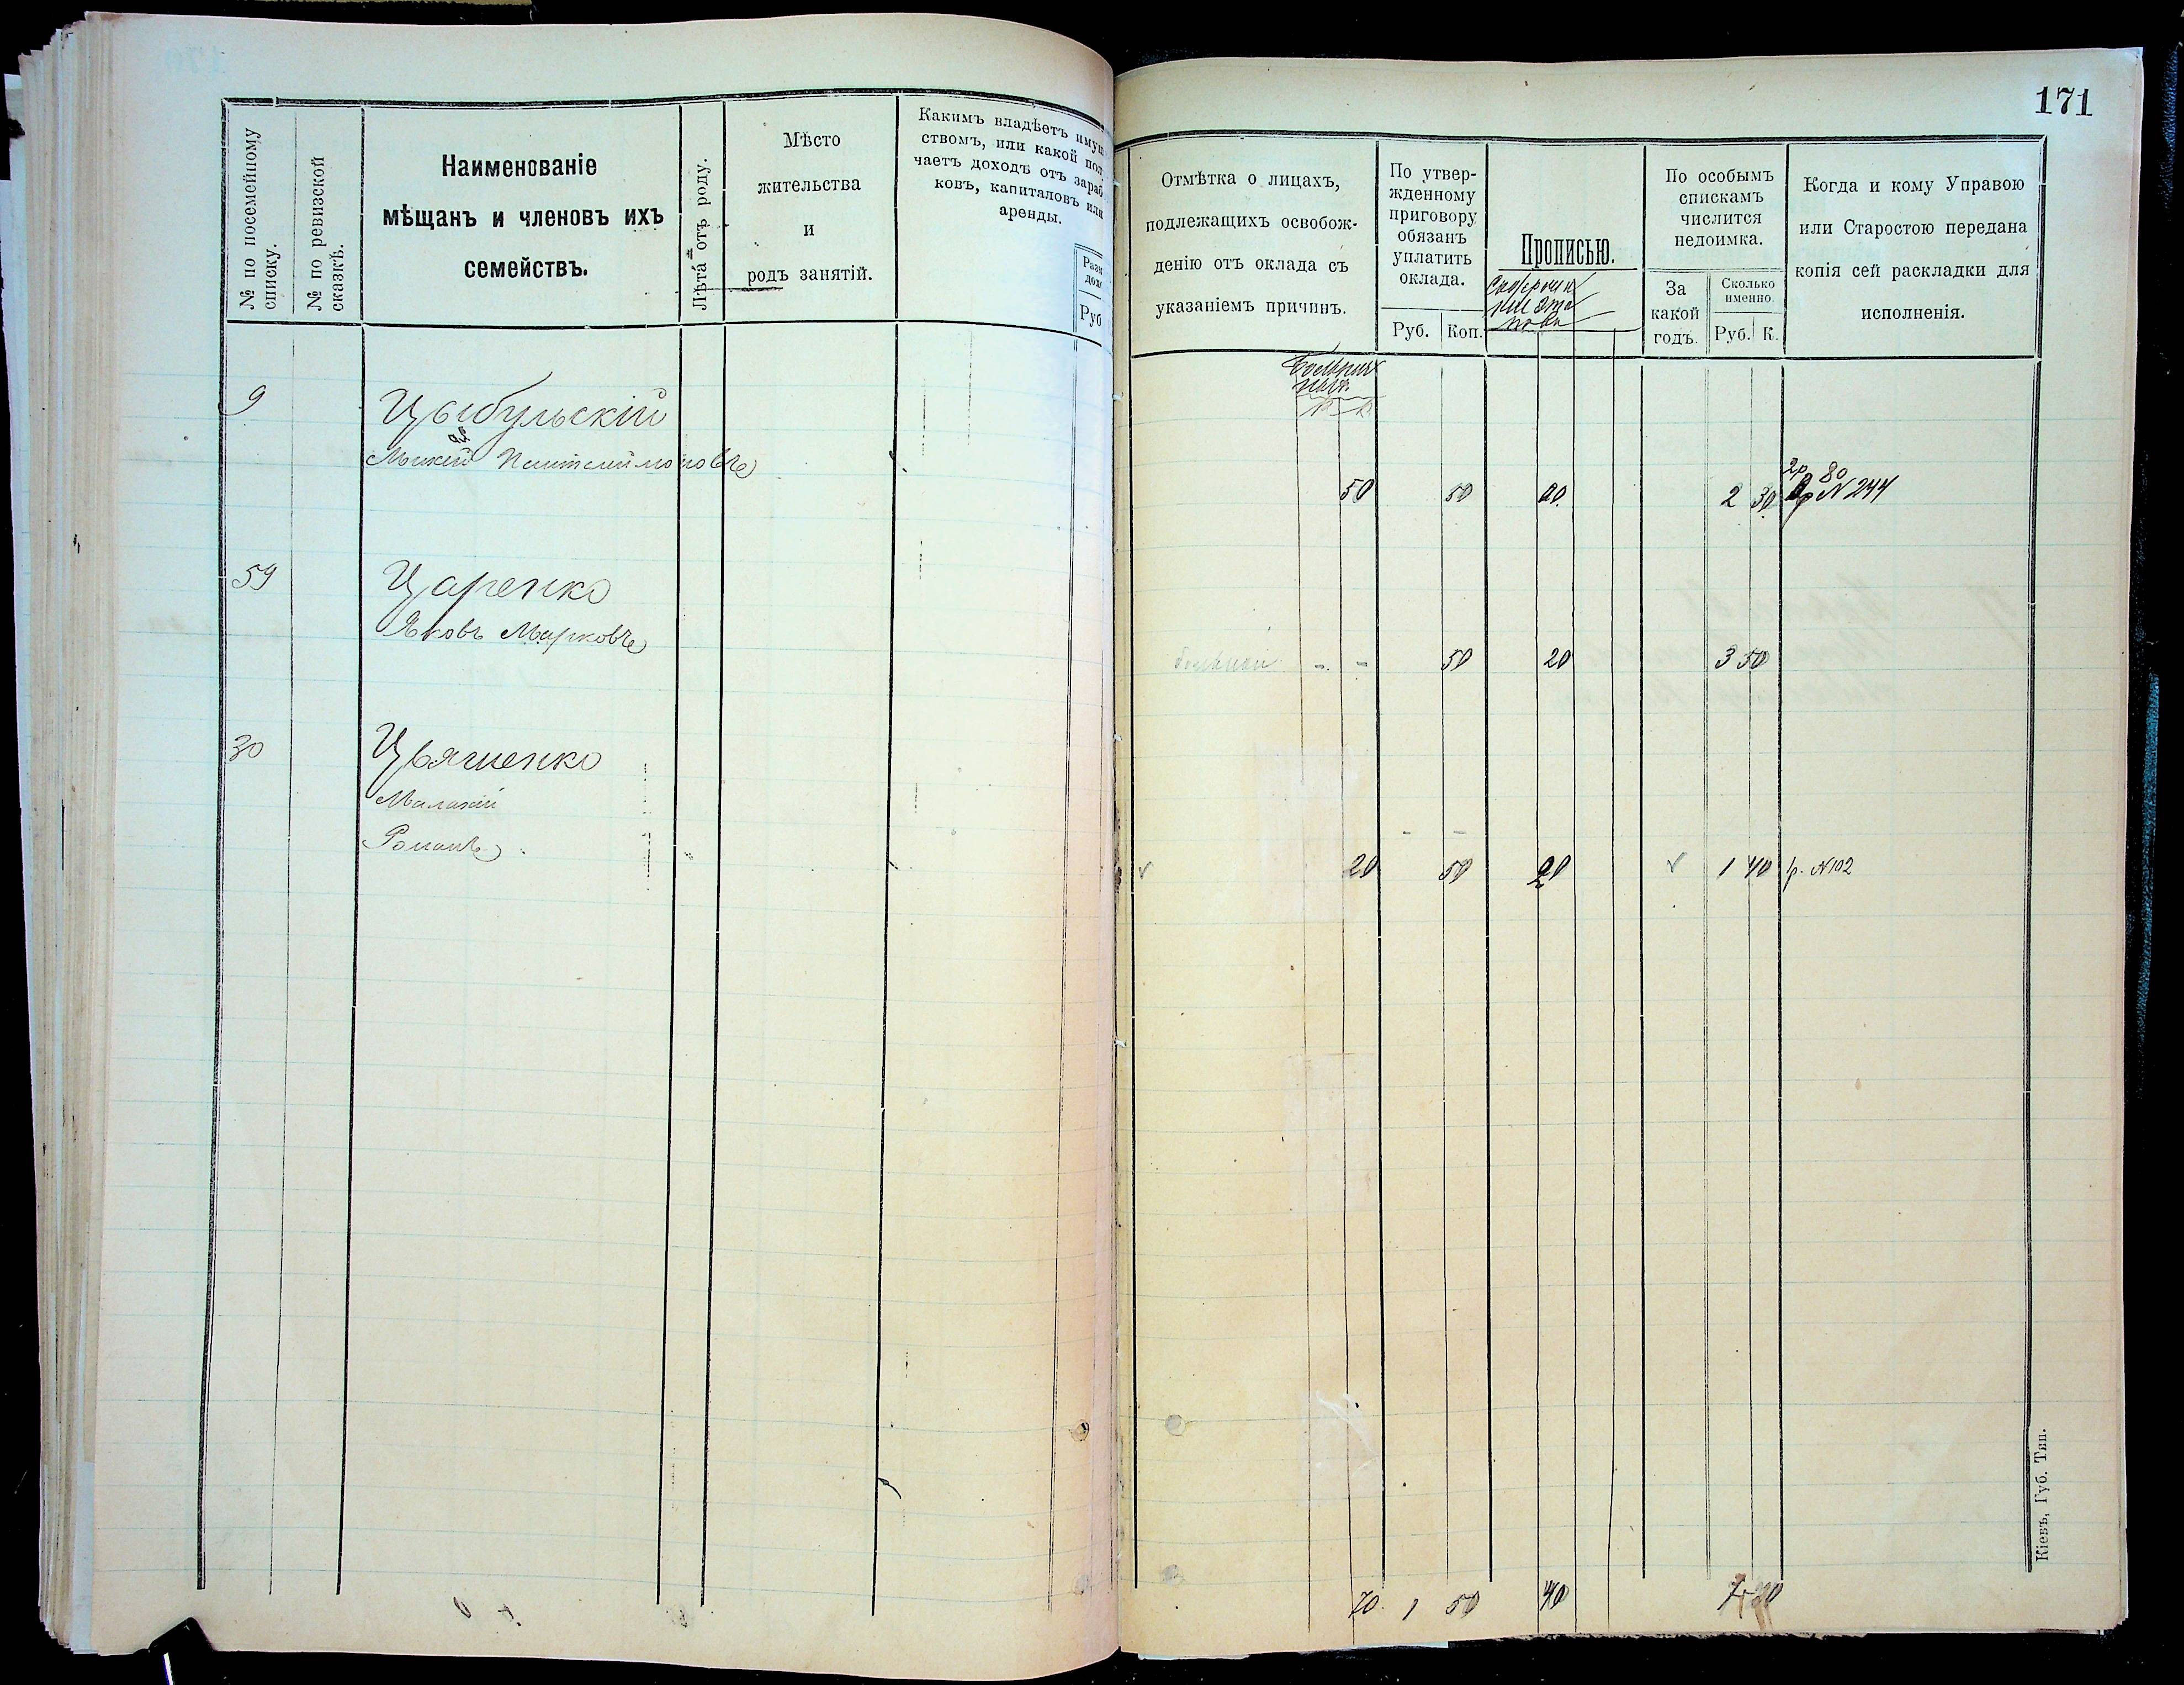 171
№ по посемейному
списку.
№ по ревизской
сказкѣ.
Наименованіе
мѣщанъ и членовъ ихъ
семействъ.
Лѣта отъ роду.
Мѣсто
жительства
и
родъ занятій.
Какимъ владѣетъ имущ
ствомъ, или какой пол
чаетъ доходъ отъ зараб
ковъ, капиталовъ или
аренды.
Разм
дох
Руб
Отмѣтка о лицахъ,
подлежащихъ освобож-
денію отъ оклада съ
указаніемъ причинъ.
По утвер-
жденному
приговору
обязанъ
уплатить
оклада.
Руб. Коп.
Прописью.
По особымъ
спискамъ
числится
недоимка.
За
какой
годъ.
Сколько
именно.
Руб. К.
Когда и кому Управою
или Старостою передана
копія сей раскладки для
исполненія.
9 Цыбульскій
Пантелимоновъ
50 50 20 2 30 № 244
59 Царенко
Яковъ Марковъ
больной - - 50 20 3 50
30
Малахій
Романъ
20 50 20 1 40 р. № 102
70 1 50 40
Кіевъ, Губ. Тип.